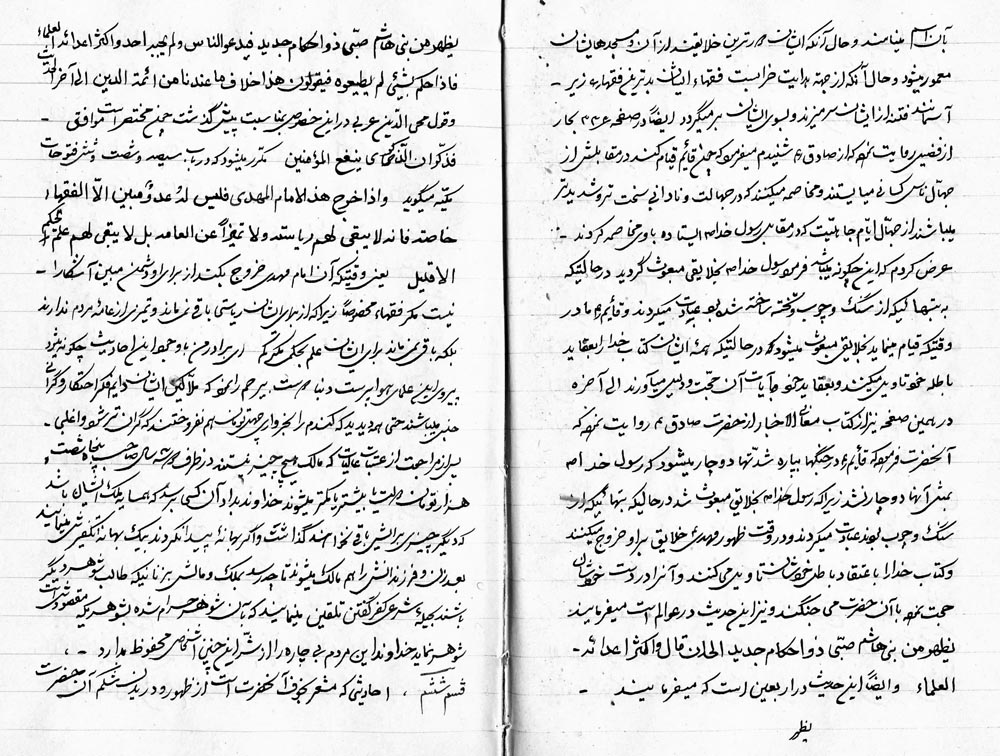 بآن اسم مینامند و حال آنکه ایشان دورترین خلایقند از آن و مسجدهاشان
معمور میشود و حال آنکه از جهة هدایت خرابست فقهاء ایشان بدترین فقهاء زیر
آسمانند فتنه از ایشان سر میزند و بسوی ایشان بر میگردد ایضاً در صفحه بحار
از فضیل روایت نموده که از صادق ع شنیدم میفرمود که چون قائم قیام کند در مقابلش از
جهّال ناس کسانی میایستند و مخاصمه میکنند که در جهالت و نادانی سخت تر و شدیدتر
میباشند از جهّال ایّام جاهلیت که در مقابل رسول خدا ص ایستاده با وی مخاصمه کردند
عرض کردم که این چگونه میباشد فرمود رسول خدا ص بخلایقی مبعوث گردید در حالتیکه
به بتها ئیکه از سنگ و چوب و تخته ساخته شده بود عبادت میکردند و قائم ما در
وقتیکه قیام مینماید بخلایقی مبعوث میشود که در حالتیکه همهٔ ایشان کتاب خدا را بعقاید
باطله خود تاویل میکنند و بعقاید خود بآیات آن حجت و دلیل میآورند الی آخره
در همین صفحه نیز از کتاب از حضرت صادق ع روایت نموده که
آنحضرت فرمود که قائم در جنگها بپاره شدتها دوچار میشود که رسول خدا ص
بمثل آنها دوچار نشد زیرا که رسول خدا ص بخلایقی مبعوث شد در حالتیکه بتهائیکه از
سنگ و چوب بودند عبادت میکردند و در وقت ظهور مهدی خلایق بر او خروج میکنند
و کتاب خدا را با عتقاد باطل خودشان تاویل می کنند و آنرا در دست خودشان
حجت نموده با آن حضرت می جنگند و نیز این حدیث در عوالم است میفرماید
یظهر من بنی هاشم صبّی ذو احکام جدید الی ان قال و اکثر اعدائه
العلماء و ایضاً این حدیث در اربعین است که میفرمایند
یظهر
یظهر من بنی هاشم صبّی ذو احکام جدید فیدعو الناس و لم یجبه احد و اکثر اعدائه العلماء
فاذا حکم بشیئی لم یطیعوه فیقولون هذا خلاف ما عندنا من ائمة الدین الی آخر الحدیث
و قول محی الدین عربی در این خصوص بمناسبت پیش گذشت چون مختصر است موافق
فذکّر ان الذکری ینفع المؤمنین مکرر میشود که در باب سیصد و شصت و شش فتوحات
مکیّه میگوید و اذا خرج هذا الامام المهدی فلیس له عدوٌ مبین الّا الفقهاء
خاصّة فانه لا یبقی لهم ریاسته و لا تمیزاً عن العامه بل لا یبقی لهم علم بحکم
الا قلیل یعنی وقتیکه آن امام مهدی خروج بکند از برای او دشمن مبین آشکارا
نیست مگر فقهاء مخصوصاً زیرا که از برای ایشان ریاستی باقی نمی ماند و تمیزی از عامه مردم ندارند
بلکه باقی نمی ماند برای ایشان علم بحکمی مگر کم ای برادر من با وجود این احادیث چگونه میشود
پیروی این علماء هوا پرست دنیا دوست بیرحم را نمود که ایشان دایم فکر احتکار و گرانی
جنس میباشند حتی دیدید که گندم را بخرواری چند تومان هم نفروختند که گران تر شود و اغلبی
پس از مراجعت از عتبات عالیات که مالک هیچ چیز نیستند در ظرف سال صاحب پنجاه شصت
هزار تومان دولت یا بیشتر یا کمتر میشوند خداوند بداد آن کسی برسد که همسایه ملک ایشان باشد
که دیگر چیزی برایش باقی نخواهند گذاشت و اگر بهانهٔ پیدا نکردند بیک بهانهٔ تکفیرش مینمایند
بعد زن و فرزندانش را هم مالک میشوند تا چه رسد بملک و مالش بزنانیکه طالب شوهر دیگر
باشند بحیلهٔ شرعی کفر گفتن تلقین مینمایند که بآن شوهر حرام شده بشوهریکه مقصودش است
شوهر نماید خداوند این مردم بی چاره را از شرّ این چنین اشخاص محفوظ بدارد
قسم ششم احادیثی که مشعر بخوف آنحضرت است از ظهور و دریدن شکم آن حضرت